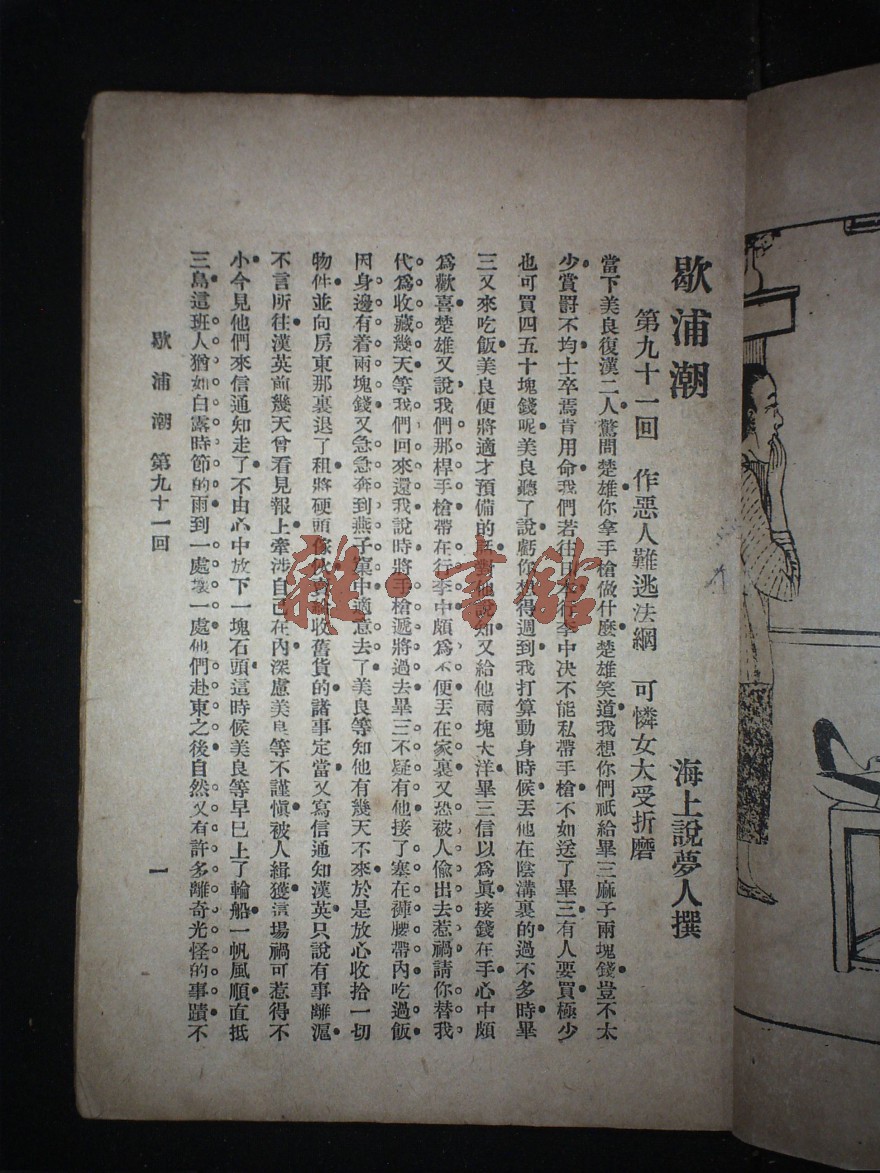 歇浦潮
海上說夢人撰
第九十一回 作惡人難逃法網 可憐女大受折磨
當下美良復漢二人驚問楚雄你拿手槍做什麼楚雄笑道我想你們祇給畢三麻子兩塊錢豈不太
少賞罸不均士卒焉肯用命我們若往日本行李中决不能私帶手槍不如送了畢三有人要買極少
也可買四五十塊錢呢美良聽了說虧你想得週到我打算動身時候丟他在陰溝裏的過不多時畢
三又來吃飯美良便將適才預備的話對他說知又給他兩塊大洋畢三信以爲眞接錢在手心中頗
爲歡喜楚雄又說我們那桿手槍帶在行李中頗爲不便丟在家裏又恐被人偸出去惹禍請你替我
代爲收藏幾天等我們回來還我說時將手槍遞將過去畢三不疑有他接了塞在褲腰帶內吃過飯
因身邊有着兩塊錢又急急奔到燕子窠中適意去了美良等知他有幾天不來於是放心收拾一切
物件並向房東那裏退了租將硬頭傢伙賣給收舊貨的諸事定當又寫信通知漢英只說有事離滬
不言所往漢英前幾天曾看見報上牽涉自己在內深慮美良等不謹愼被人緝獲這場禍可惹得不
小今見他們來信通知走了不由心中放下一塊石頭這時候美良等早已上了輪船一帆風順直抵
三島這班人猶如白露時節的雨到一處壞一處他們赴東之後自然又有許多離奇光怪的事蹟不
歇浦潮 第九十一回
一
雜·書館